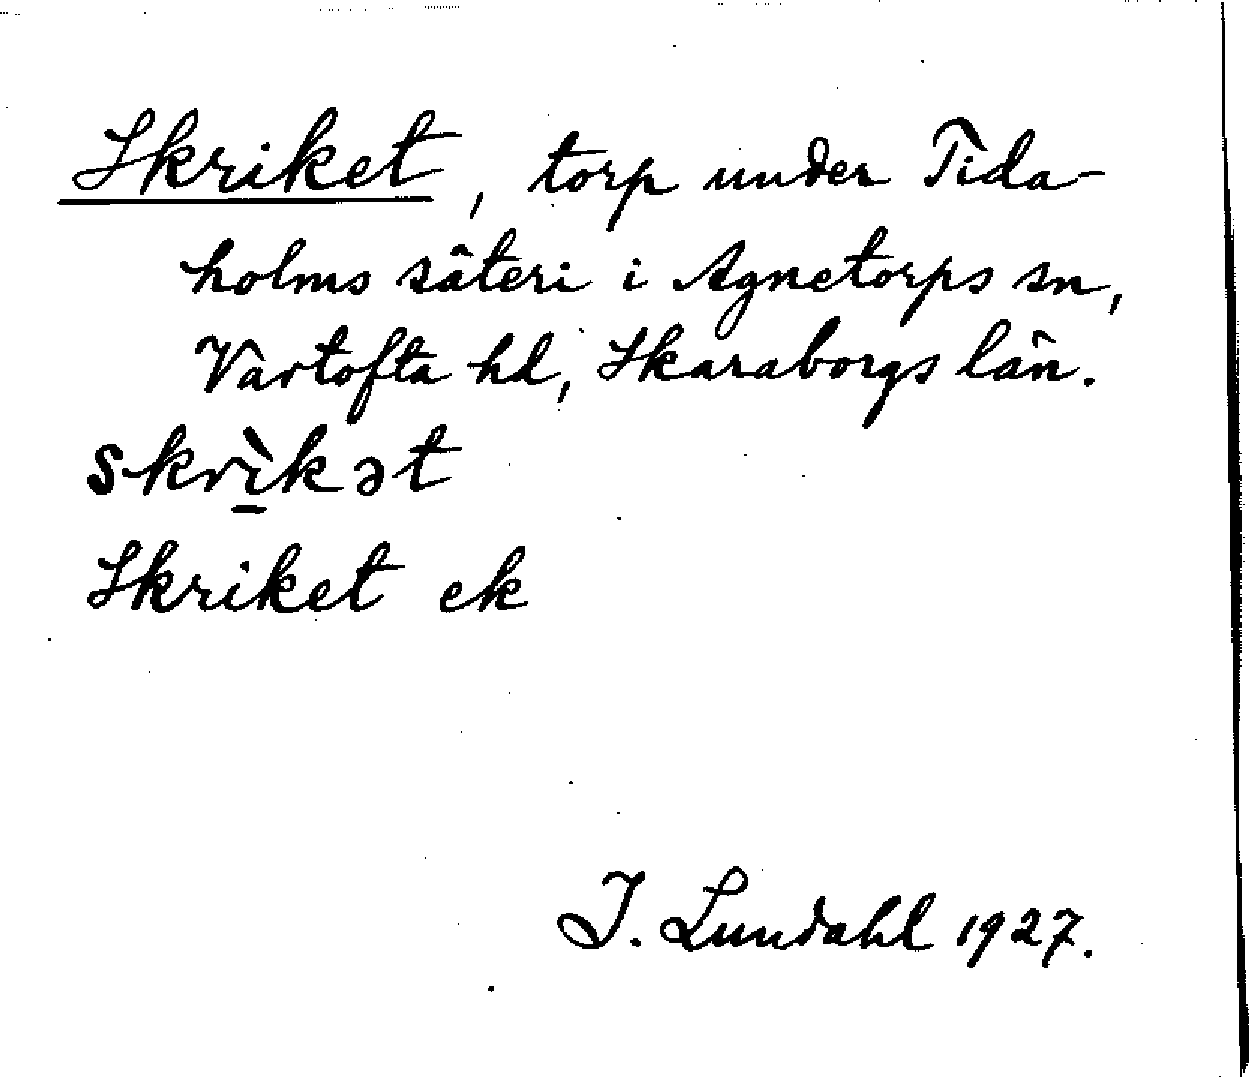 Skriket, torp under Tida-
holms säteri i Agnetorps sn,
Vartofta hd, Skaraborgs län.
skrì̱kət
Skriket ek
I. Lundahl 1927.